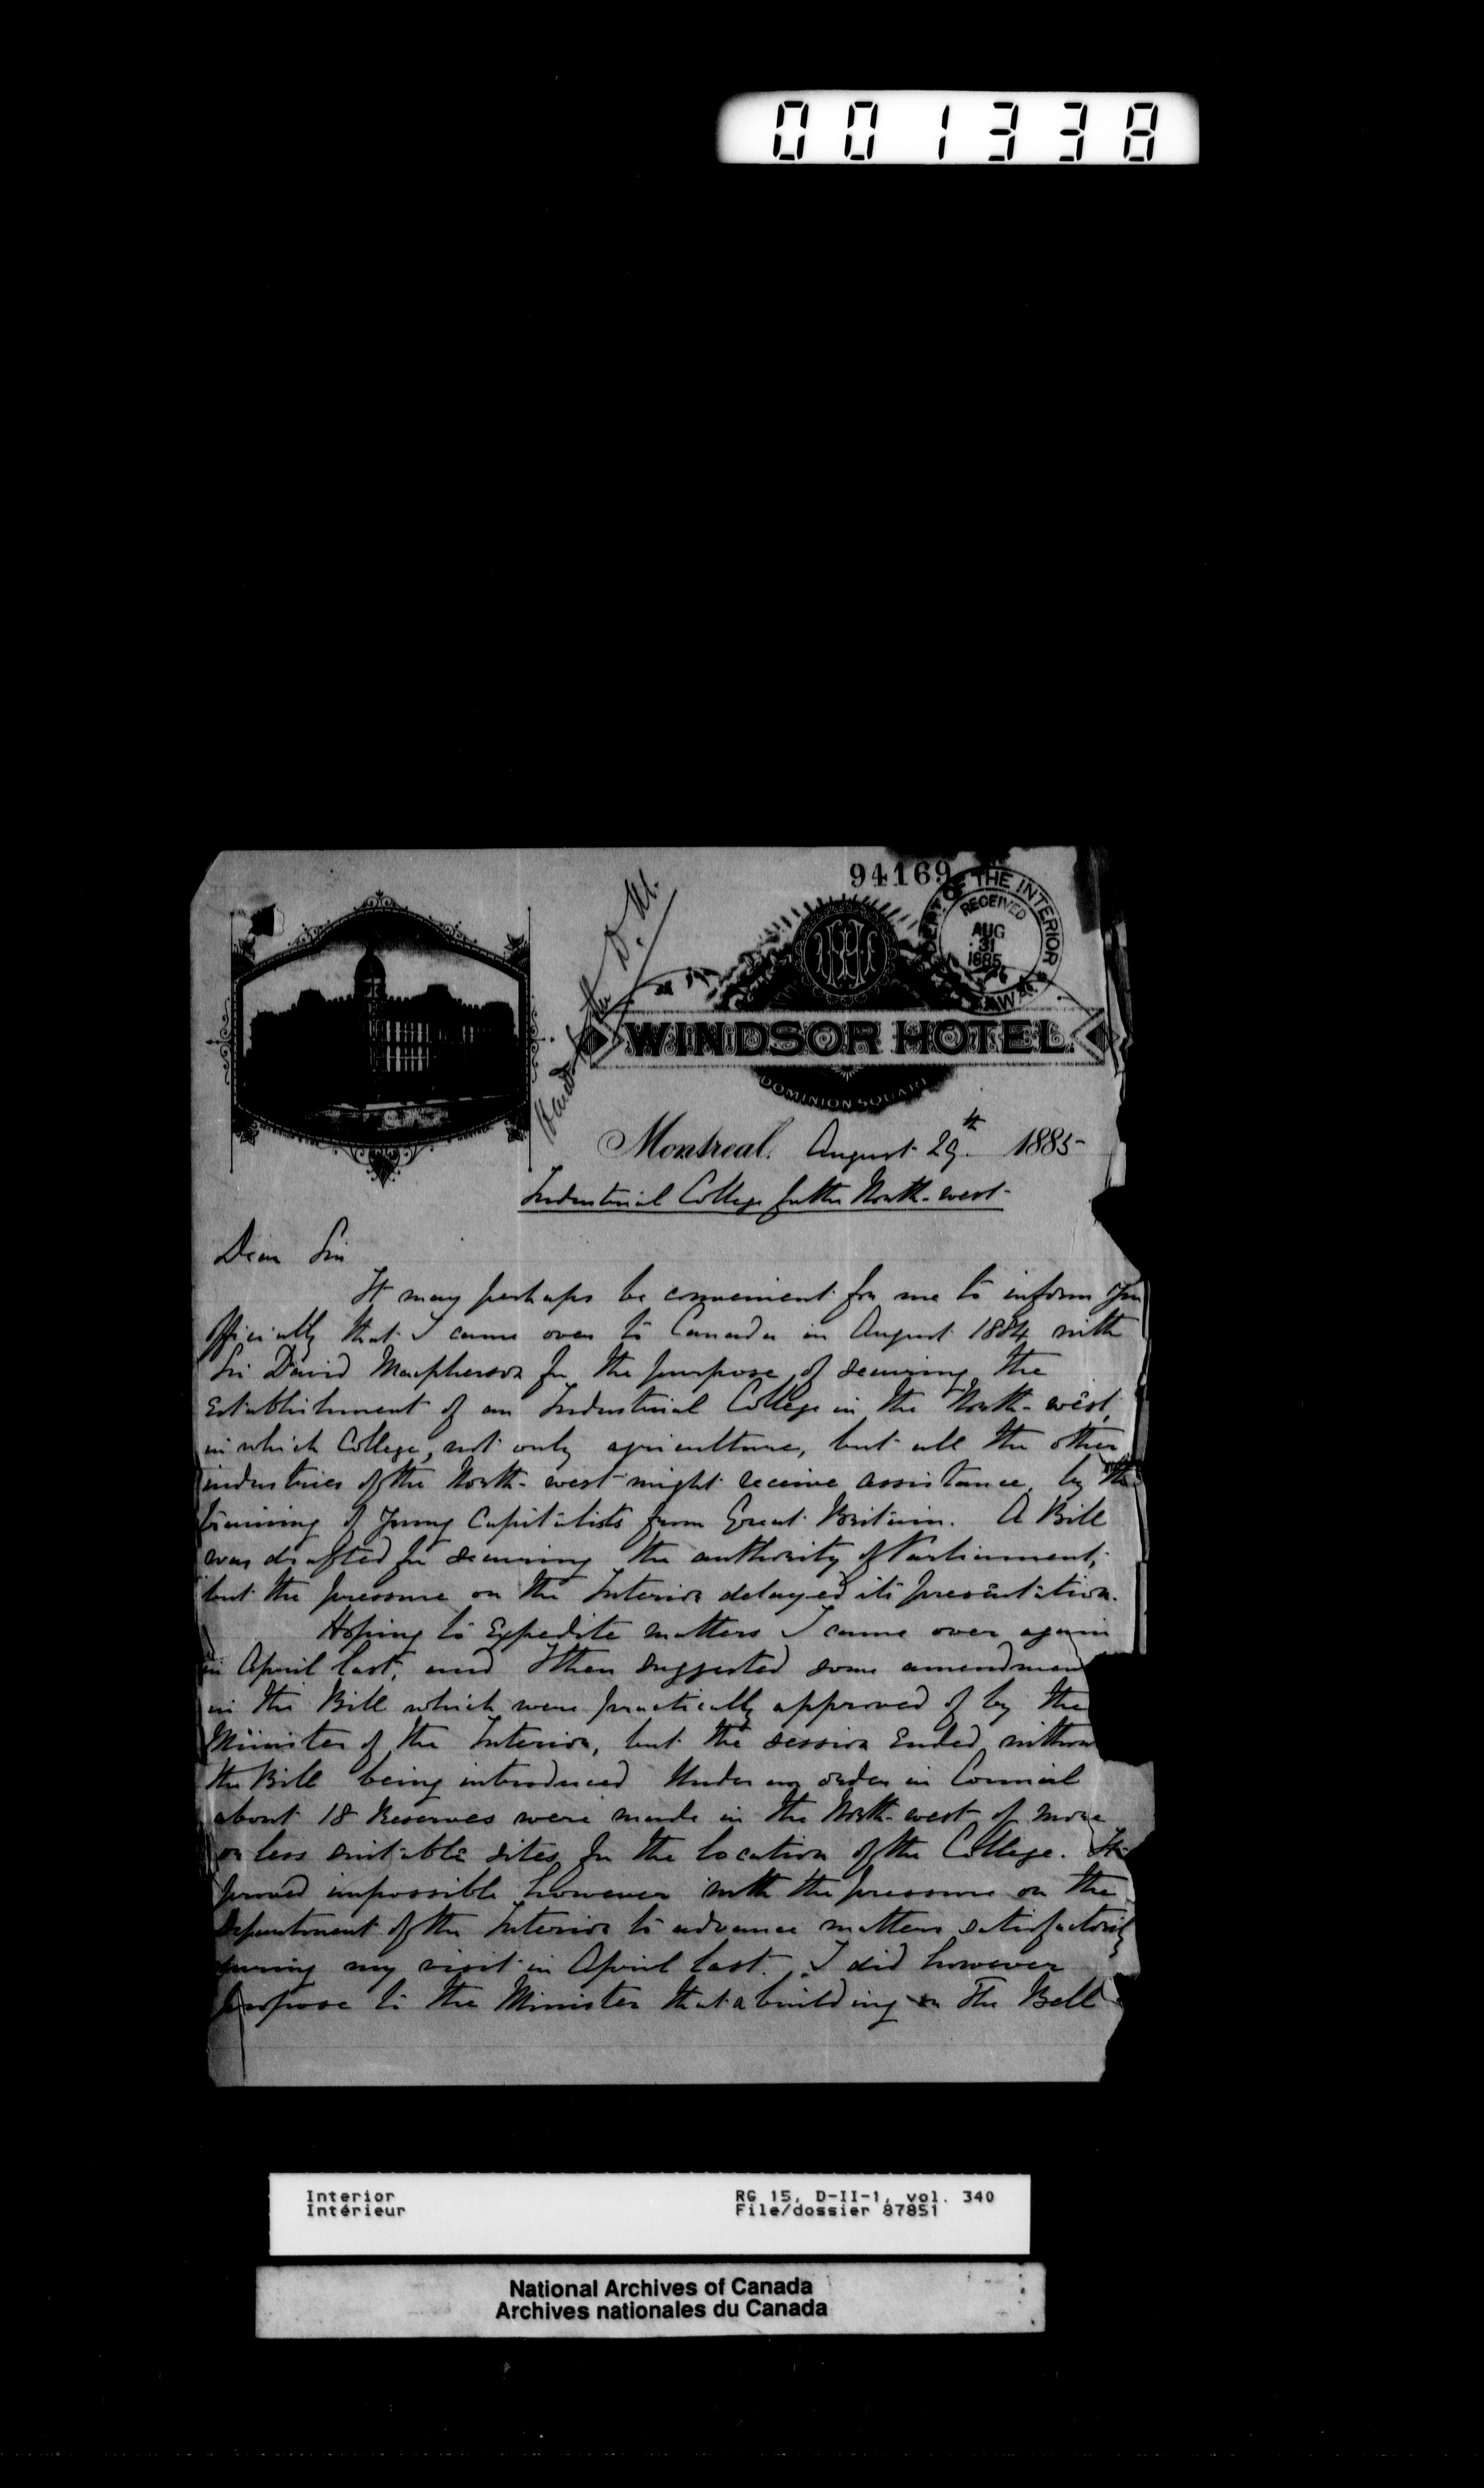 001338
94169
DEPT. OF THE INTERIOR
RECEIVED
AUG
31
1885
D. M.
WINDSOR HOTEL.
DOMINION SQUARE
Montreal. August 29th 1885
Industrial College for the North-west
Dear Sir
It may perhaps be convenient for me to inform you
officially that I came over to Canada in August 1884 with
Sir David Macpherson for the purpose of securing the
establishment of an Industrial College in the North-west,
in which College, not only agriculture, but all the other
industries of the North-west might receive assistance, by the
training of young Capitalists from Great Britain. A Bill
was drafted for securing the authority of Parliament;
but the pressure on the Interior delayed its presentation.
Hoping to Expedite matters I came over again
in April last, and I then suggested some amendmen
in the Bill which were practically approved of by the
Minister of the Interior, but the session Ended withou
the Bill being introduced Under an order in Council
about 18 Reserves were made in the North-west of more
or less suitable sites for the location of the College. It
proved impossible however with the pressure on the
Department of the Interior to advance matters satisfactorily
during my visit in April last. I did however
propose to the Minister that a building on The Bell
Interior
Intérieur
RG 15, D-II-1, vol. 340
File/dossier 87851
National Archives of Canada
Archives nationales du Canada